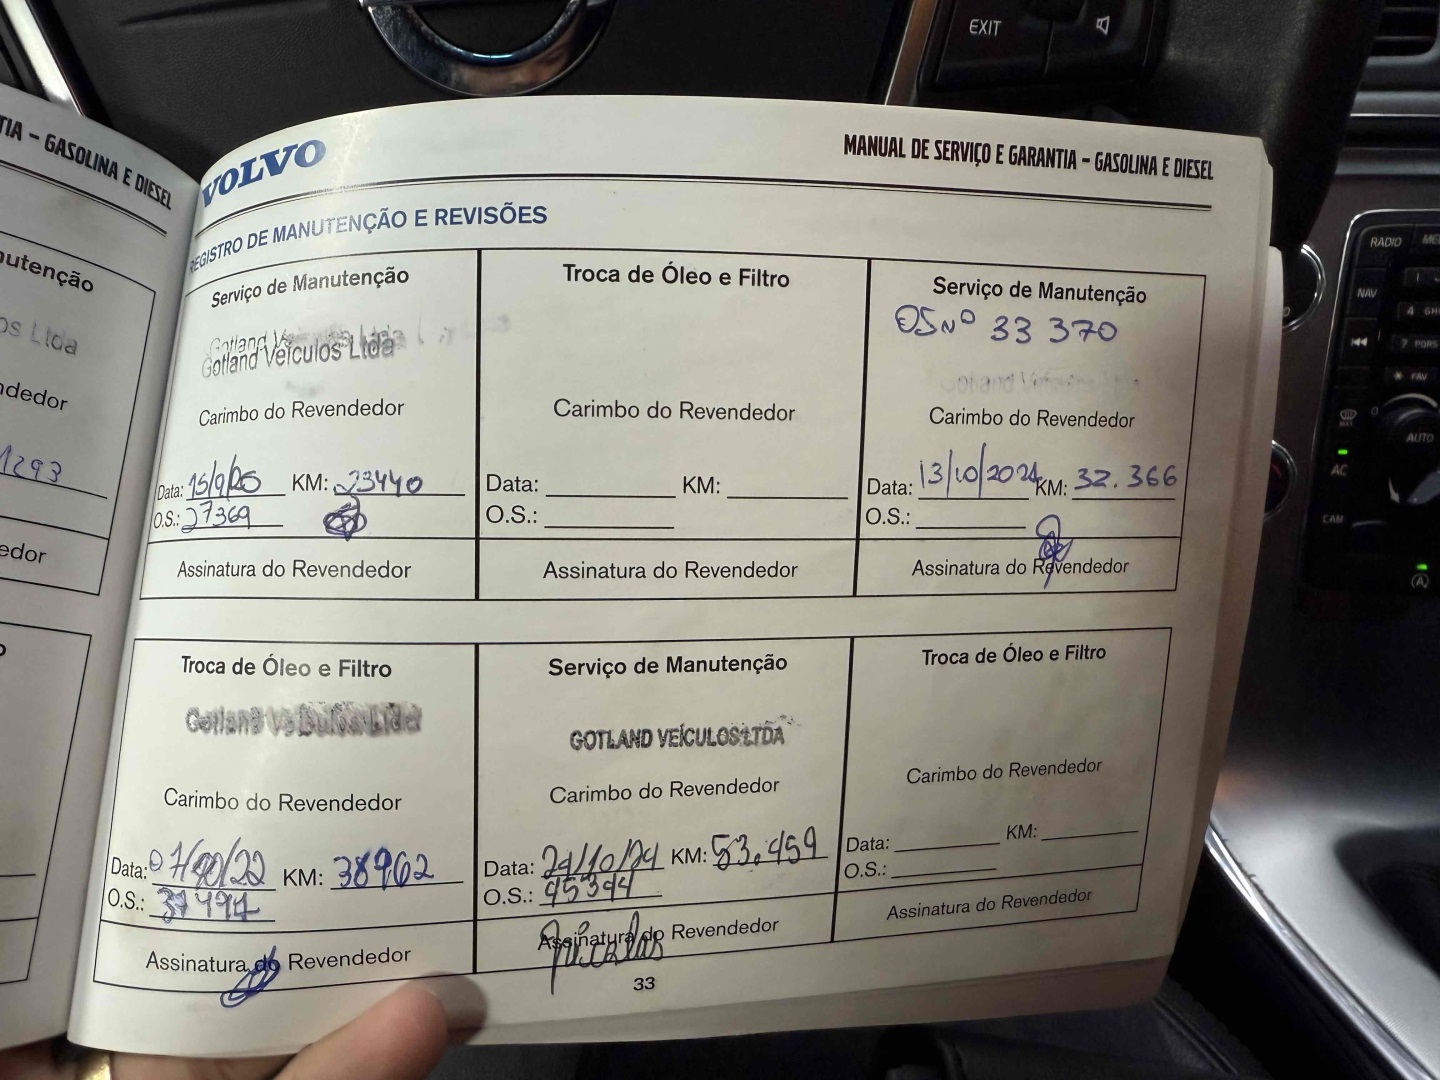 EXIT
TIA – GASOLINA E DIESEL
VOLVO
MANUAL DE SERVIÇO E GARANTIA – GASOLINA E DIESEL
REGISTRO DE MANUTENÇÃO E REVISÕES
nutenção
os Ltda
ndedor
1293
edor
Serviço de Manutenção
Gotland Veículos Ltda
Carimbo do Revendedor
Data: 15/9/20 KM: 23440
O.S.: 27369
Assinatura do Revendedor
Troca de Óleo e Filtro
Carimbo do Revendedor
Data: KM:
O.S.:
Assinatura do Revendedor
Serviço de Manutenção
OS Nº 33 370
Carimbo do Revendedor
Data: 13/10/2021 KM: 32.366
O.S.:
Assinatura do Revendedor
Troca de Óleo e Filtro
Gotland Veículos Ltda
Carimbo do Revendedor
Data: KM: 38962
O.S.:
Assinatura do Revendedor
Serviço de Manutenção
GOTLAND VEÍCULOS LTDA
Carimbo do Revendedor
Data: 24/10/24 KM: 53.459
O.S.: 45344
Assinatura do Revendedor
Nicolas
Troca de Óleo e Filtro
Carimbo do Revendedor
Data: KM:
O.S.:
Assinatura do Revendedor
33
RADIO
NAV
4 GHI
7 PQRS
FAV
AUTO
AC
CAM